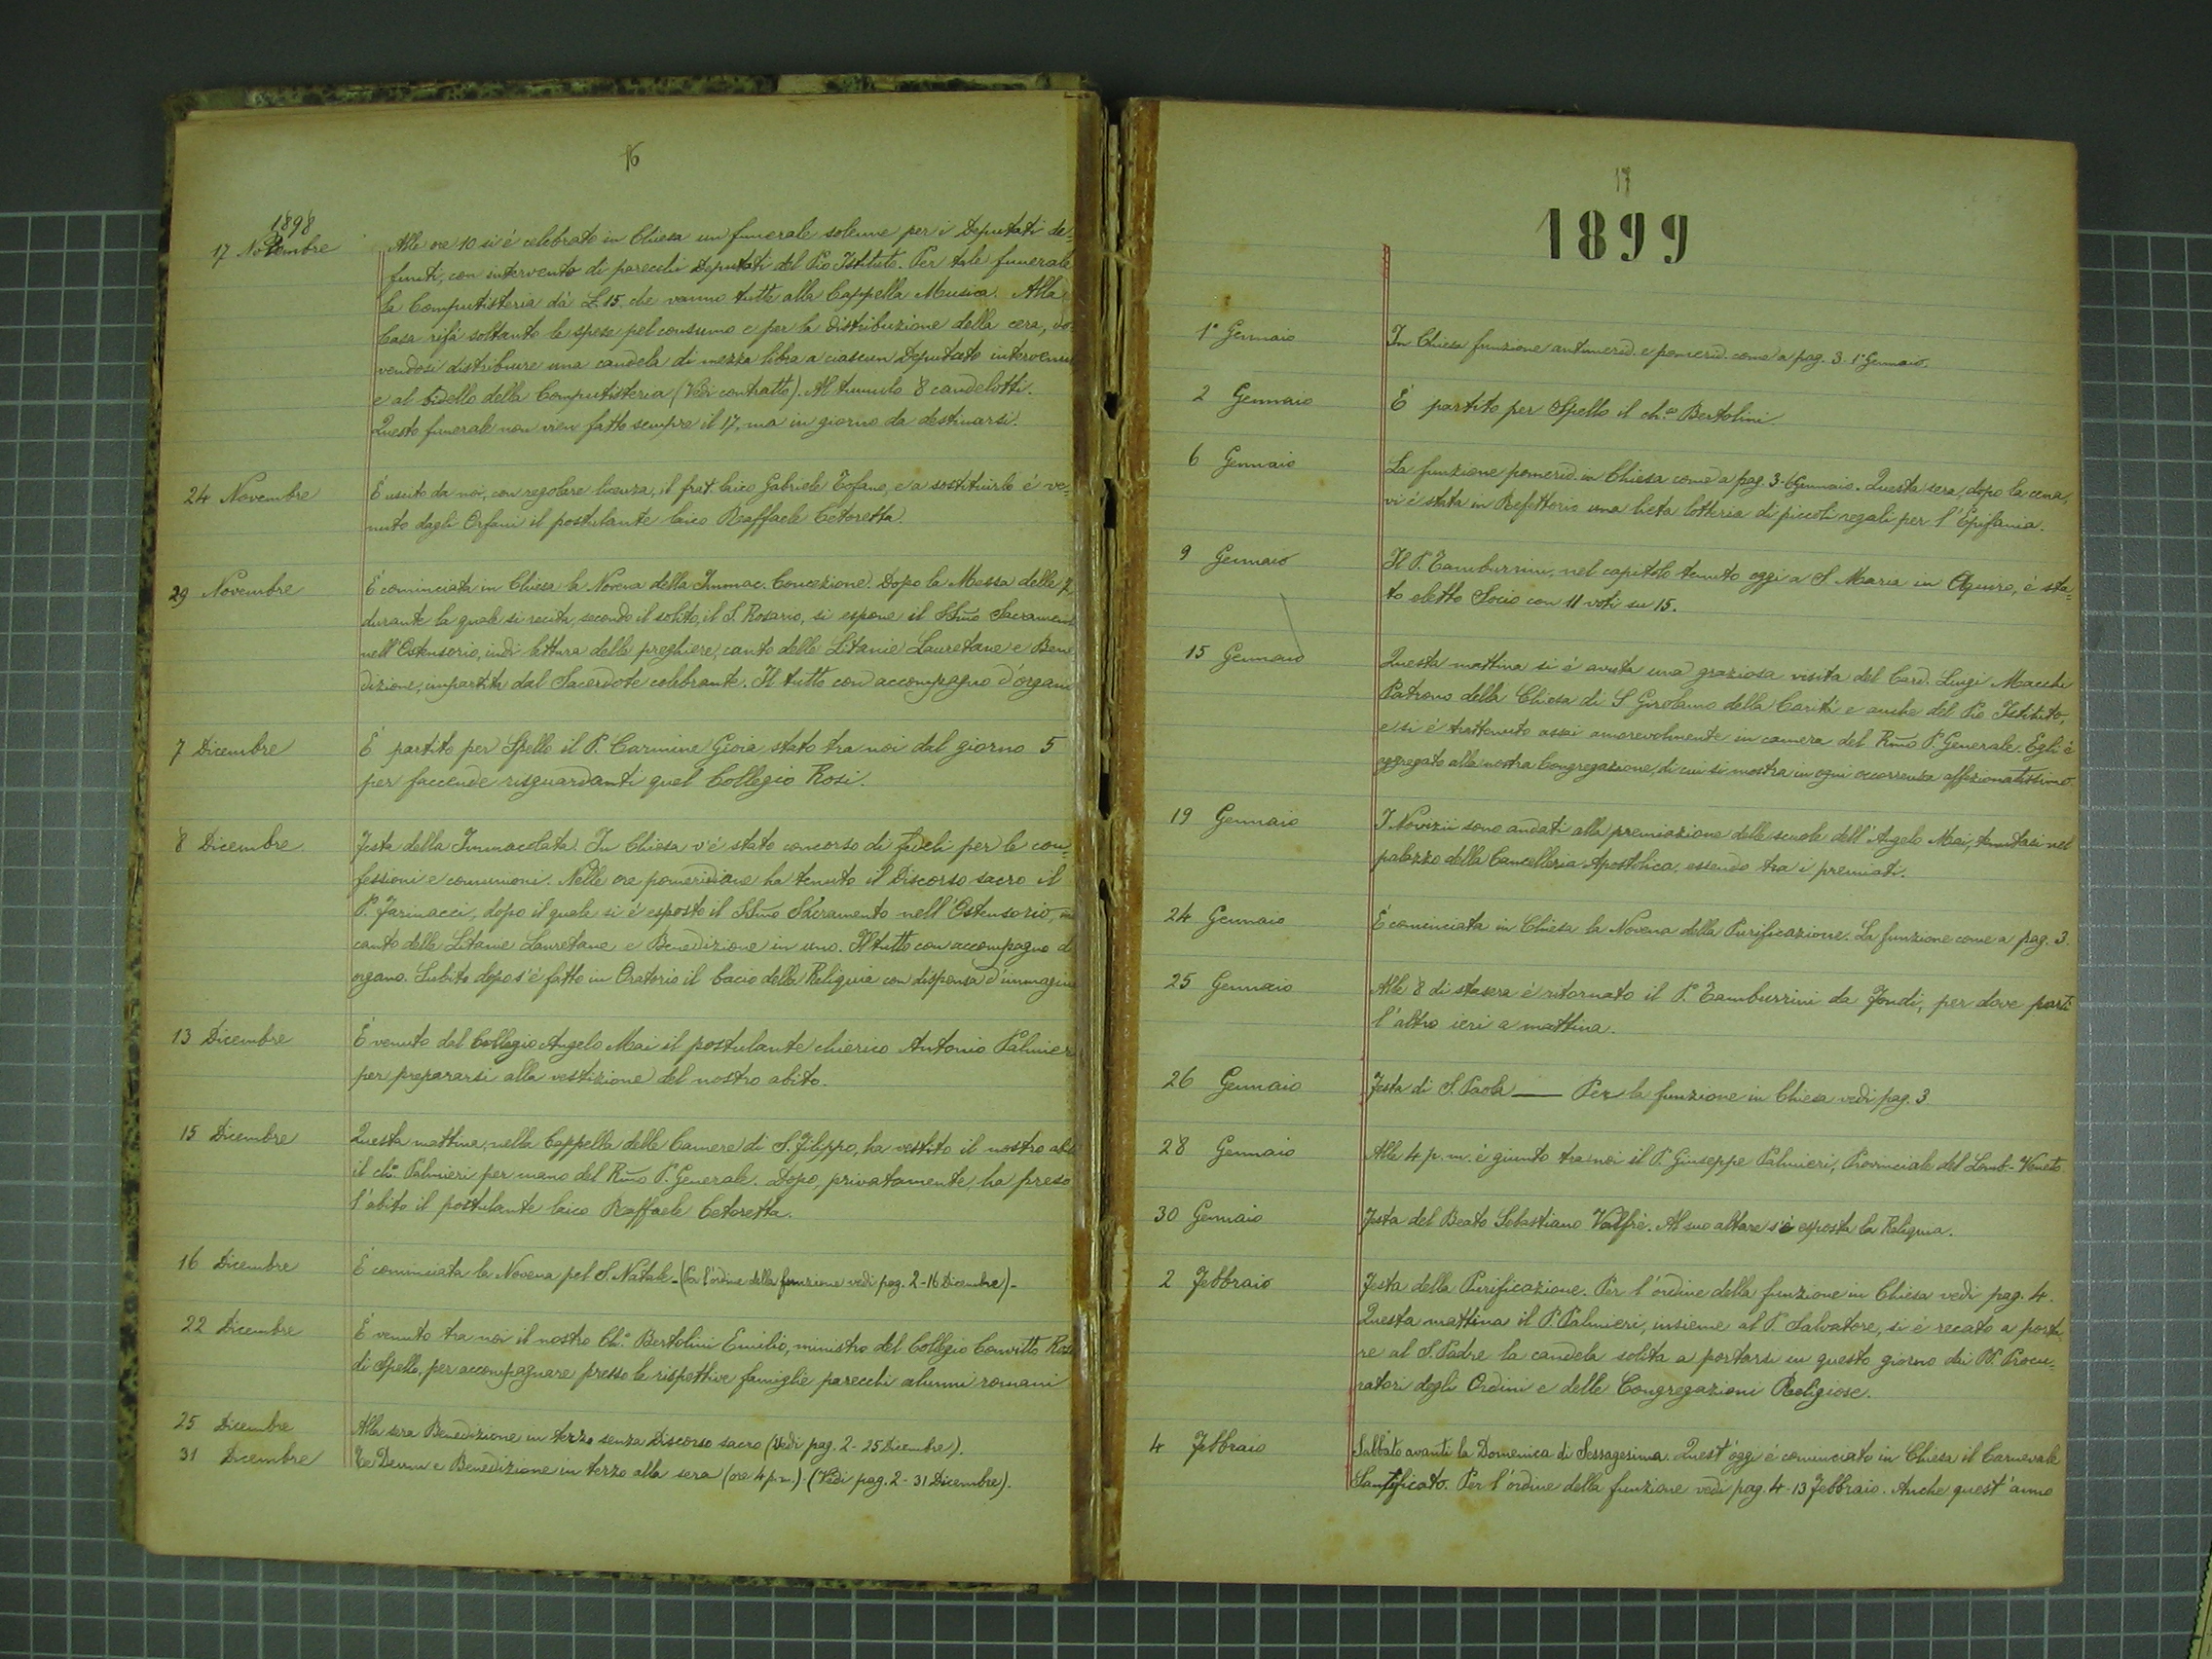 16
1898
17 Novembre Alle ore 10 si è celebrato in Chiesa un funerale solenne per i Deputati de=
funti, con intervento di parecchi Deputati del Pio Istituto. Per tale funerale
la Computisteria dà L. 15. che vanno tutte alla Cappella Musica. Alla
Casa rifà soltanto le spese pel consumo e per la distribuzione della cera, do
vendosi distribuire una candela di mezza libra a ciascun Deputato intervenu
e al bidello della Computisteria (Vedi contratto). Al tumulo 8 candelotti.
Questo funerale non vien fatto sempre il 17, ma in giorno da destinarsi.
24 Novembre È uscito da noi, con regolare licenza, il frat. laico Gabriele Tofano, e a sostituirlo è ve=
nuto dagli Orfani il postulante laico Raffaele Cetoretta.
29 Novembre È cominciata in Chiesa la Novena della Immac. Concezione. Dopo la Messa delle 7,
durante la quale si recita, secondo il solito, il S. Rosario, si espone il SSmo Sacrament
nell'Ostensorio, indi lettura delle preghiere, canto delle Litanie Lauretane e Bene
dizione, impartita dal Sacerdote celebrante. Il tutto con accompagno d'organo
7 Dicembre È partito per Spello il P. Carmine Gioia stato tra noi dal giorno 5
per faccende risguardanti quel Collegio Rosi.
8 Dicembre Festa della Immacolata. In Chiesa v'è stato concorso di fedeli per le con=
fessioni e comunioni. Nelle ore pomeridiane ha tenuto il Discorso sacro il
P. Farinacci, dopo il quale si è esposto il SSmo Sacramento nell'Ostensorio,
canto delle Litanie Lauretane e Benedizione in uno. Il tutto con accompagno d
organo. Subito dopo s'è fatto in Oratorio il bacio della Reliquia con dispensa d'immagini
13 Dicembre È venuto dal Collegio Angelo Mai il postulante chierico Antonio Palmier
per prepararsi alla vestizione del nostro abito.
15 Dicembre Questa mattina, nella Cappella delle Camere di S. Filippo, ha vestito il nostro abi
il ch.o Palmieri per mano del Rmo P. Generale. Dopo, privatamente, ha preso
l'abito il postulante laico Raffaele Cetoretta.
16 Dicembre È cominciata la Novena pel S. Natale - (Per l'ordine della funzione vedi pag. 2 - 16 Dicembre) -
22 Dicembre È venuto tra noi il nostro Ch.o Bertolini Emilio, ministro del Collegio Convitto Rosi
di Spello, per accompagnare presso le rispettive famiglie parecchi alunni romani
25 Dicembre Alla sera Benedizione in terzo senza Discorso sacro (Vedi pag. 2 - 25 Dicembre).
31 Dicembre Te Deum e Benedizione in terzo alla sera (ore 4 p.m.) (Vedi pag. 2 - 31 Dicembre).
17
1899
1° Gennaio In Chiesa funzione antimerid. e pomerid. come a pag. 3. 1° Gennaio.
2 Gennaio È partito per Spello il ch.o Bertolini.
6 Gennaio La funzione pomerid. in Chiesa come a pag. 3 - 6 Gennaio. Questa sera, dopo la cena,
vi è stata in Refettorio una lieta lotteria di piccoli regali per l'Epifania.
9 Gennaio Il P. Tamburrini, nel capitolo tenuto oggi a S. Maria in Aquiro, è sta=
to eletto Socio con 11 voti su 15.
15 Gennaio Questa mattina si è avuta una graziosa visita del Card. Luigi Macchi
Patrono della Chiesa di S. Girolamo della Carità e anche del Pio Istituto,
e si è trattenuto assai amorevolmente in camera del Rmo P. Generale. Egli è
aggregato alla nostra Congregazione, di cui si mostra in ogni occorrenza affezionatissimo.
19 Gennaio I Novizii sono andati alla premiazione delle scuole dell'Angelo Mai, tenutasi nel
palazzo della Cancelleria Apostolica, essendo tra i premiati.
24 Gennaio È cominciata in Chiesa la Novena della Purificazione. La funzione come a pag. 3.
25 Gennaio Alle 8 di stasera è ritornato il P. Tamburrini da Fondi, per dove partì
l'altro ieri a mattina.
26 Gennaio Festa di S. Paola — Per la funzione in Chiesa vedi pag. 3
28 Gennaio Alle 4 p. m. è giunto tra noi il P. Giuseppe Palmieri, Provinciale del Lomb.-Veneto.
30 Gennaio Festa del Beato Sebastiano Valfrè. Al suo altare s'è esposta la Reliquia.
2 Febbraio Festa della Purificazione. Per l'ordine della funzione in Chiesa vedi pag. 4.
Questa mattina il P. Palmieri, insieme al P. Salvatore, si è recato a porta
re al S. Padre la candela solita a portarsi in questo giorno dai PP. Procu=
ratori degli Ordini e delle Congregazioni Religiose.
4 Febbraio Sabbato avanti la Domenica di Sessagesima. Quest'oggi è cominciato in Chiesa il Carnevale
Santificato. Per l'ordine della funzione vedi pag. 4 - 13 Febbraio. Anche quest'anno